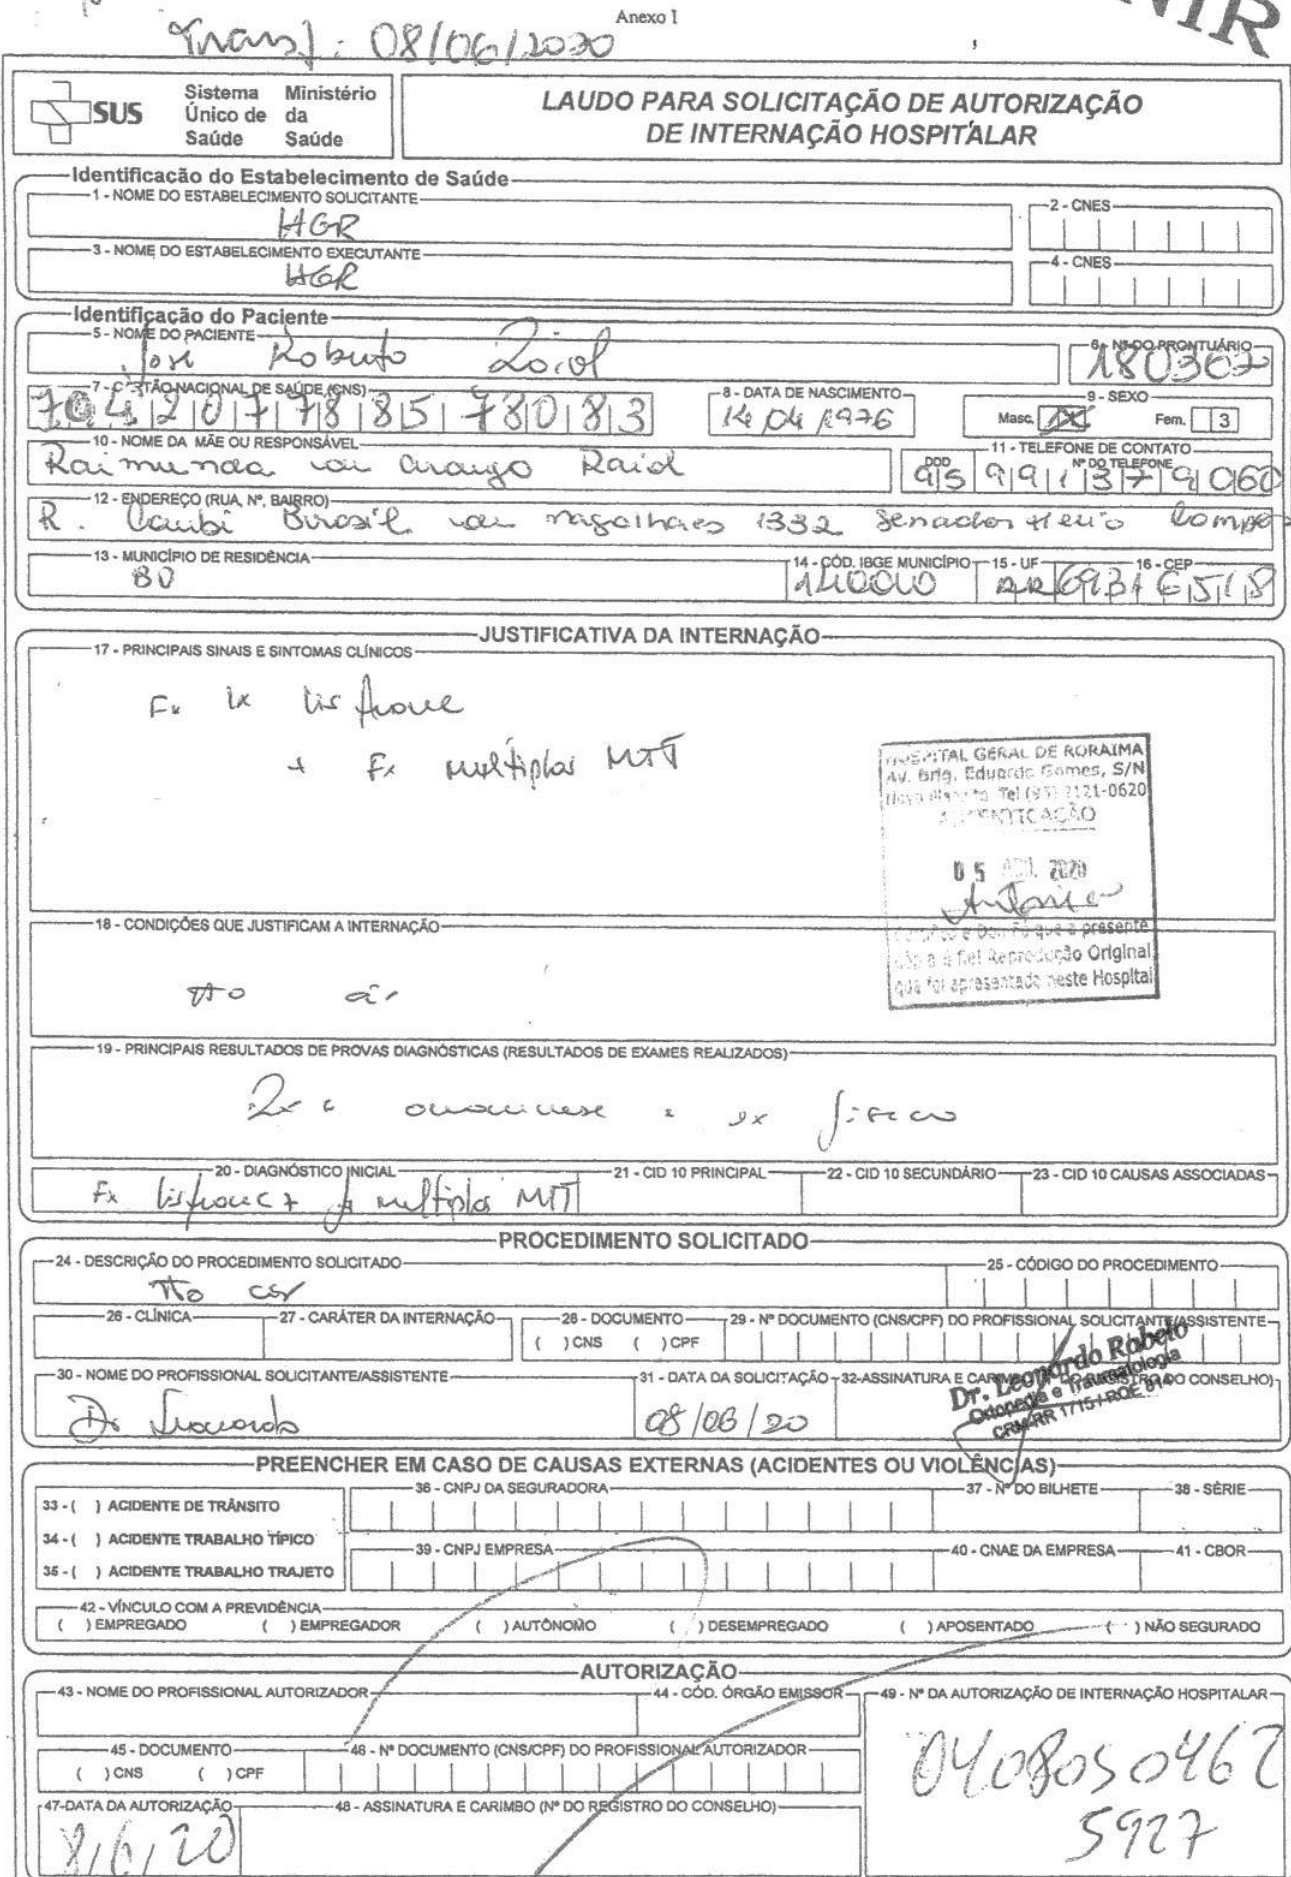 Anexo 1
NIR
Transf: 08/06/2020
SUS
Sistema Único de Saúde
Ministério da Saúde
LAUDO PARA SOLICITAÇÃO DE AUTORIZAÇÃO
DE INTERNAÇÃO HOSPITALAR
Identificação do Estabelecimento de Saúde
1 - NOME DO ESTABELECIMENTO SOLICITANTE
HGR
2 - CNES
3 - NOME DO ESTABELECIMENTO EXECUTANTE
HGR
4 - CNES
Identificação do Paciente
5 - NOME DO PACIENTE
José Roberto Raiol
6 - Nº DO PRONTUÁRIO
180362
7 - CARTÃO NACIONAL DE SAÚDE (CNS)
704207788578083
8 - DATA DE NASCIMENTO
14/04/1976
9 - SEXO
Masc.
Fem. 3
10 - NOME DA MÃE OU RESPONSÁVEL
Raimunda araujo Raiol
11 - TELEFONE DE CONTATO
DDD
Nº DO TELEFONE
95 991379060
12 - ENDEREÇO (RUA, Nº, BAIRRO)
R. Caubi Brasil magalhaes 1332 Senador Helio Campos
13 - MUNICÍPIO DE RESIDÊNCIA
BV
14 - CÓD. IBGE MUNICÍPIO
140010
15 - UF
RR
16 - CEP
69316518
JUSTIFICATIVA DA INTERNAÇÃO
17 - PRINCIPAIS SINAIS E SINTOMAS CLÍNICOS
Fx lx lisfranc
+ Fx multiplas MTT
HOSPITAL GERAL DE RORAIMA
Av. Brig. Eduardo Gomes, S/N
Tel (95) 2121-0620
AUTENTICAÇÃO
05 2020
que a presente
cópia é fiel Reprodução Original
que foi apresentado neste Hospital
18 - CONDIÇÕES QUE JUSTIFICAM A INTERNAÇÃO
tto cir
19 - PRINCIPAIS RESULTADOS DE PROVAS DIAGNÓSTICAS (RESULTADOS DE EXAMES REALIZADOS)
anamnese ex fisico
20 - DIAGNÓSTICO INICIAL
Fx lisfranc + fx multiplas MTT
21 - CID 10 PRINCIPAL
22 - CID 10 SECUNDÁRIO
23 - CID 10 CAUSAS ASSOCIADAS
PROCEDIMENTO SOLICITADO
24 - DESCRIÇÃO DO PROCEDIMENTO SOLICITADO
tto cir
25 - CÓDIGO DO PROCEDIMENTO
26 - CLÍNICA
27 - CARÁTER DA INTERNAÇÃO
28 - DOCUMENTO
( ) CNS ( ) CPF
29 - Nº DOCUMENTO (CNS/CPF) DO PROFISSIONAL SOLICITANTE/ASSISTENTE
30 - NOME DO PROFISSIONAL SOLICITANTE/ASSISTENTE
Dr Leonardo
31 - DATA DA SOLICITAÇÃO
08/06/20
32-ASSINATURA E CARIMBO (Nº DO REGISTRO DO CONSELHO)
Dr. Leonardo Rabelo
Ortopedia e Traumatologia
CRM-RR 1715 I RQE 814
PREENCHER EM CASO DE CAUSAS EXTERNAS (ACIDENTES OU VIOLÊNCIAS)
33 - ( ) ACIDENTE DE TRÂNSITO
34 - ( ) ACIDENTE TRABALHO TÍPICO
35 - ( ) ACIDENTE TRABALHO TRAJETO
36 - CNPJ DA SEGURADORA
37 - Nº DO BILHETE
38 - SÉRIE
39 - CNPJ EMPRESA
40 - CNAE DA EMPRESA
41 - CBOR
42 - VÍNCULO COM A PREVIDÊNCIA
( ) EMPREGADO ( ) EMPREGADOR ( ) AUTÔNOMO ( ) DESEMPREGADO ( ) APOSENTADO ( ) NÃO SEGURADO
AUTORIZAÇÃO
43 - NOME DO PROFISSIONAL AUTORIZADOR
44 - CÓD. ÓRGÃO EMISSOR
49 - Nº DA AUTORIZAÇÃO DE INTERNAÇÃO HOSPITALAR
0408050462
5927
45 - DOCUMENTO
( ) CNS ( ) CPF
46 - Nº DOCUMENTO (CNS/CPF) DO PROFISSIONAL AUTORIZADOR
47-DATA DA AUTORIZAÇÃO
8/6/20
48 - ASSINATURA E CARIMBO (Nº DO REGISTRO DO CONSELHO)